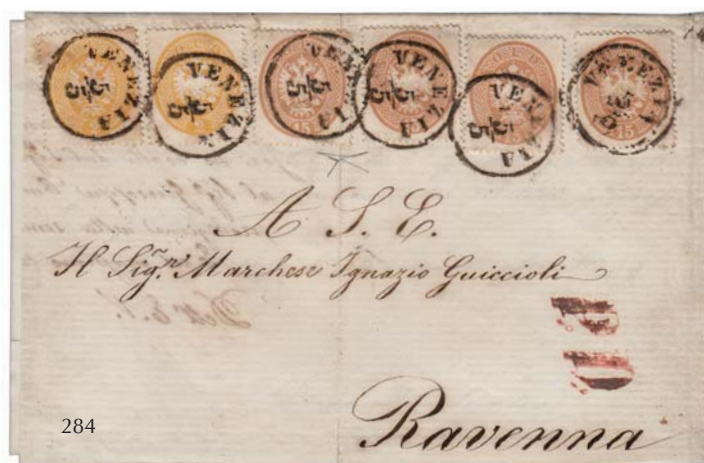 VENEZIA 5/5
VENEZIA 5/5
VENEZIA 5/5
VENEZIA 5/5
VENEZIA 5/5
VENEZIA
SOLDI
15
15
15
A S. E.
Il Sigr. Marchese Ignazio Guiccioli
P.D.
Ravenna
284